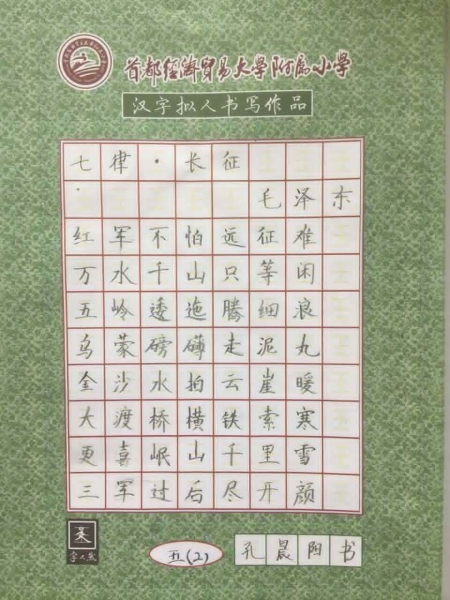 首都经济贸易大学附属小学
汉字拟人书写作品
七律·长征
毛泽东
红军不怕远征难
万水千山只等闲
五岭逶迤腾细浪
乌蒙磅礴走泥丸
金沙水拍云崖暖
大渡桥横铁索寒
更喜岷山千里雪
三军过后尽开颜
五(2)
孔晨阳书